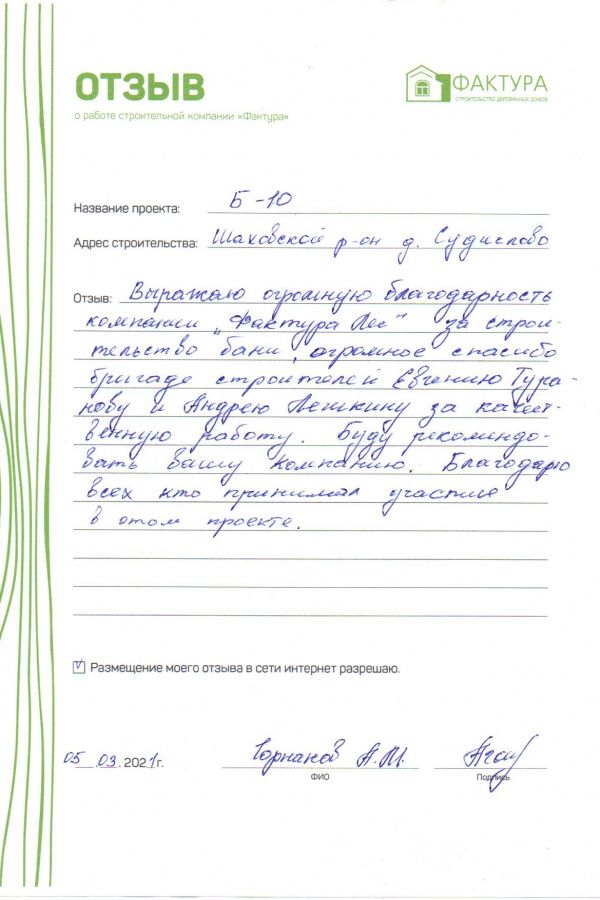 ОТЗЫВ
о работе строительной компании «Фактура»
ФАКТУРА
СТРОИТЕЛЬСТВО ДЕРЕВЯННЫХ ДОМОВ
Название проекта: Б-10
Адрес строительства: Шаховской р-он д. Судислово
Отзыв: Выражаю огромную благодарность
компании „Фактура Лес" за строи-
тельство бани, огромное спасибо
бригаде строителей Евгению Тура-
нову и Андрею Лешкину за качест-
венную работу. Буду рекомендо-
вать вашу компанию. Благодарю
всех кто принимал участие
в этом проекте.
Размещение моего отзыва в сети интернет разрешаю.
05.03.2021г. А.М.
ФИО Подпись